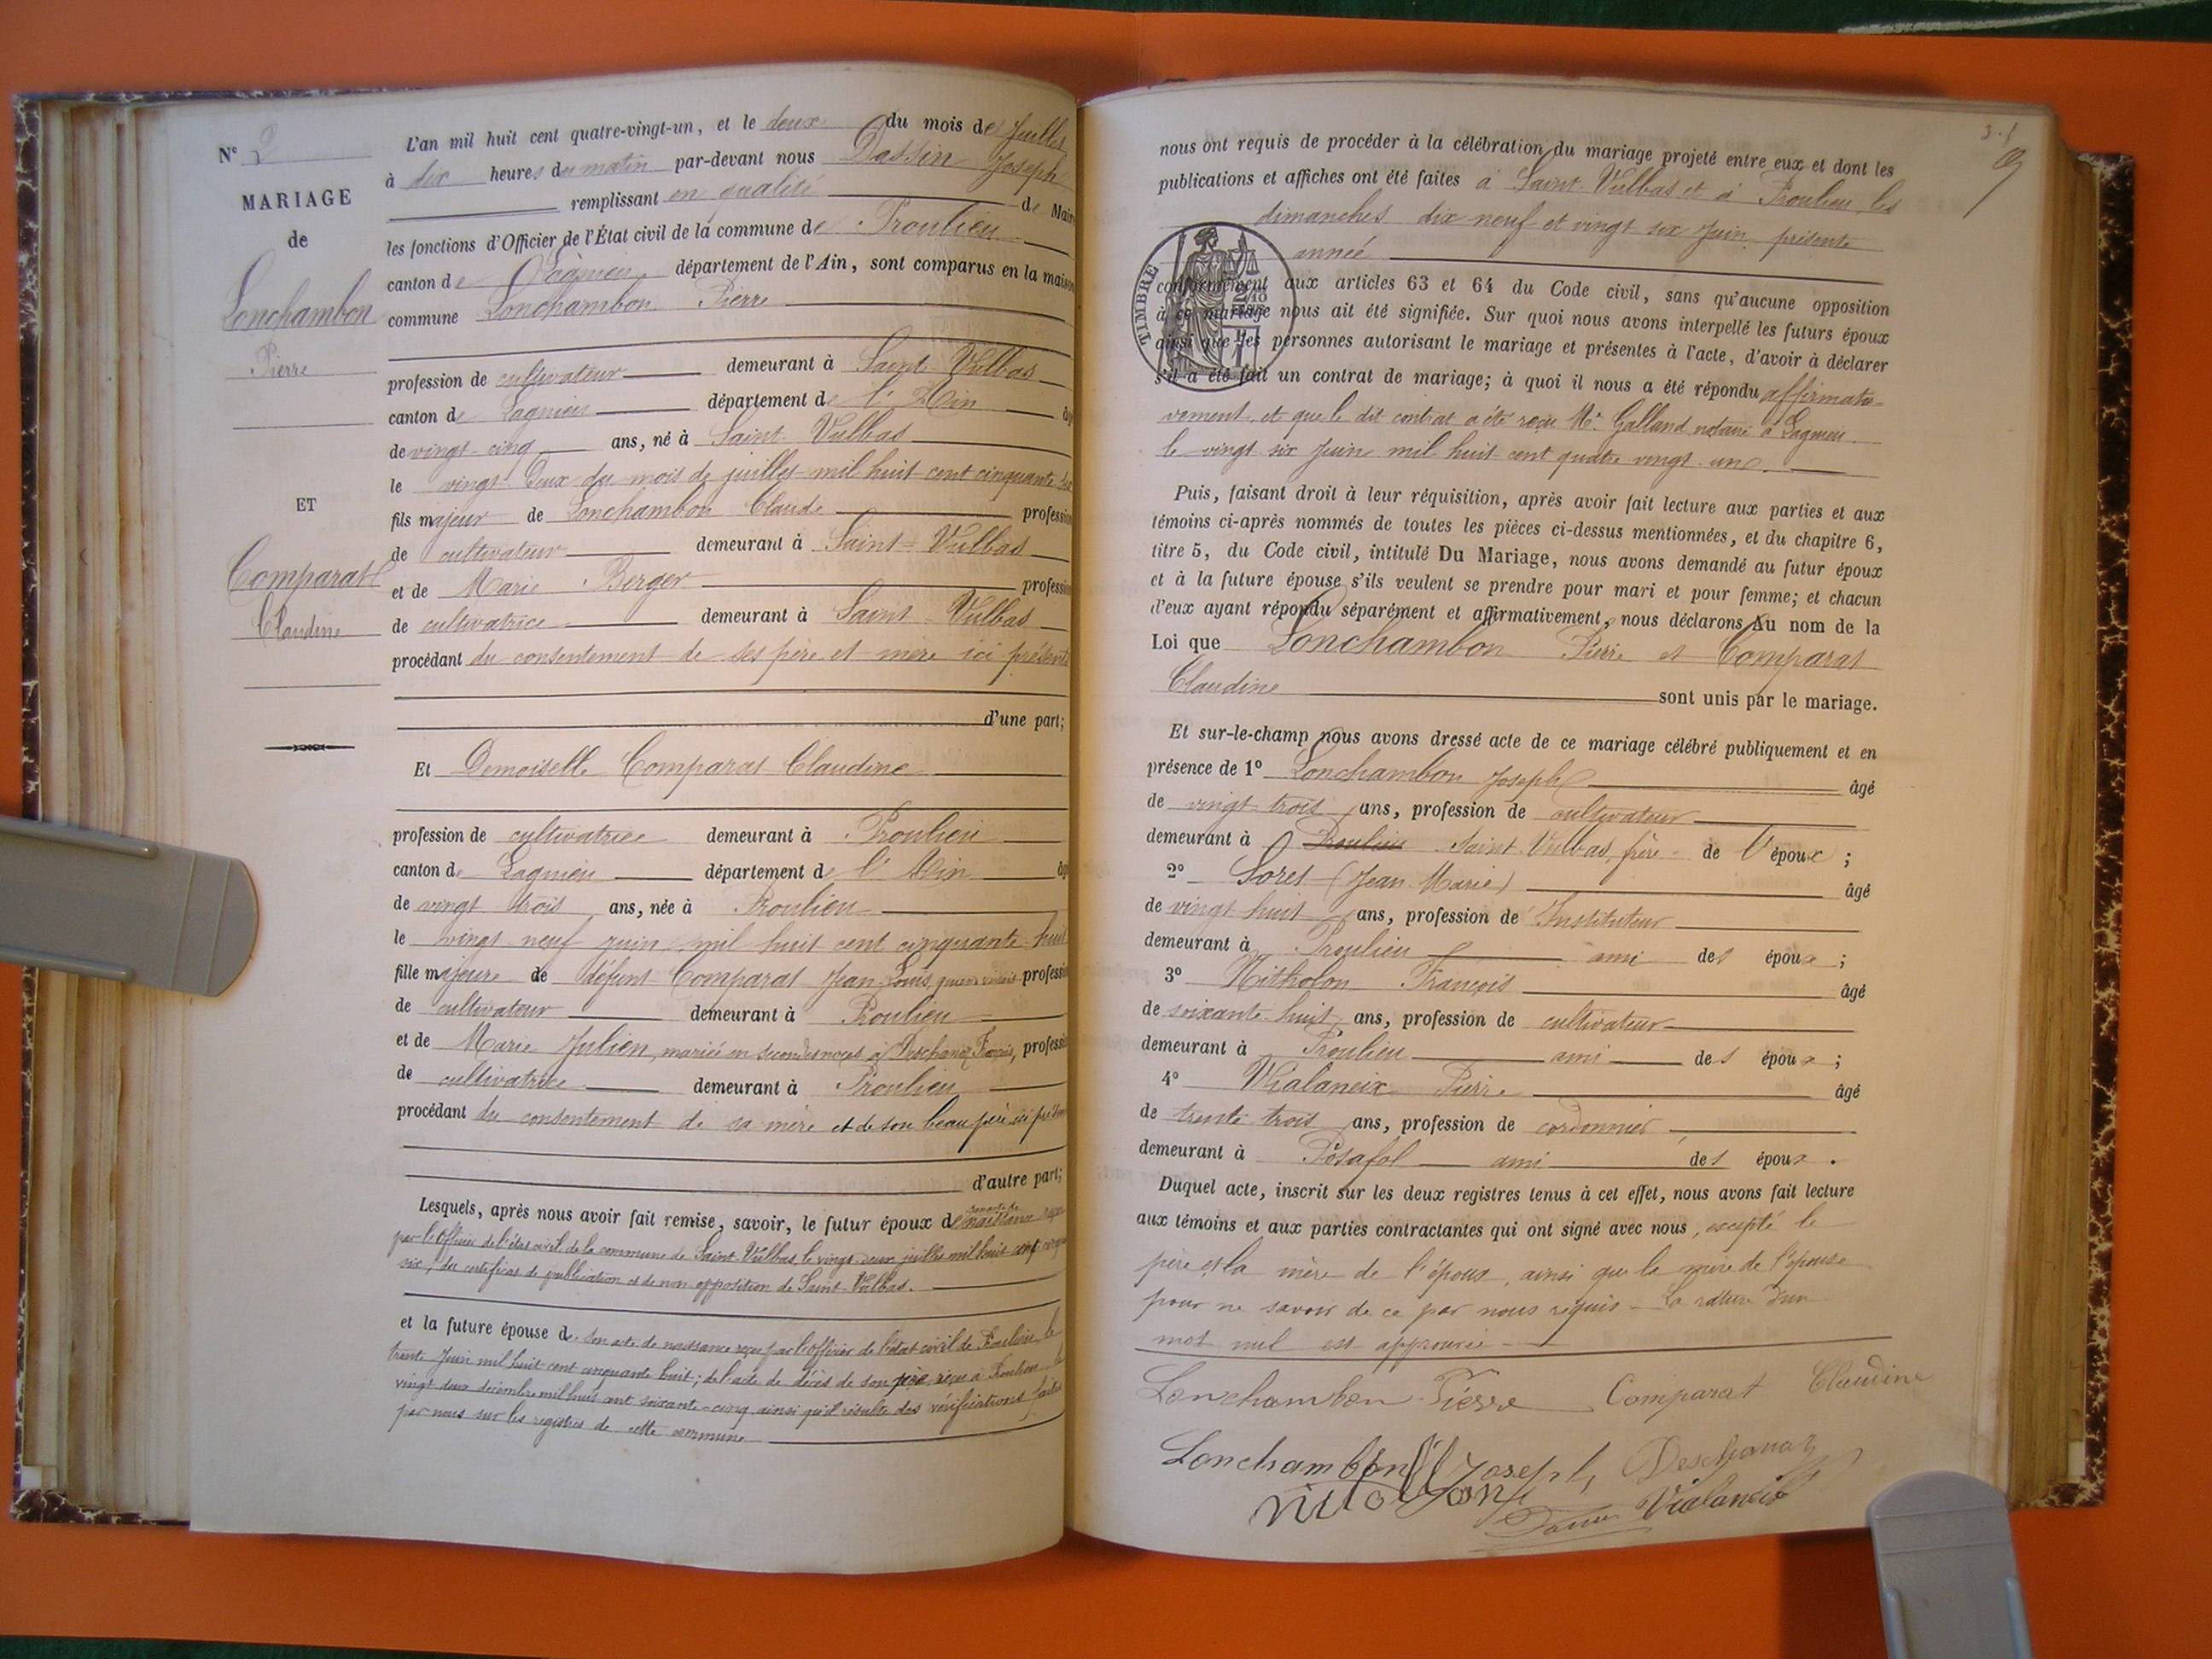 N° 2
MARIAGE
de
Lonchambon
Pierre
ET
Comparat
Claudine
L'an mil huit cent quatre-vingt-un, et le deux du mois de Juillet
à dix heures du matin par-devant nous Dassin Joseph
remplissant en qualité de Maire
les fonctions d'Officier de l'État civil de la commune de Proulieu
canton de Lagnieu, département de l'Ain, sont comparus en la maison
commune Lonchambon Pierre
profession de cultivateur demeurant à Saint-Vulbas
canton de Lagnieu département de l'Ain âgé
de vingt-cinq ans, né à Saint-Vulbas
le vingt deux du mois de juillet mil huit cent cinquante six
fils majeur de Lonchambon Claude profession
de cultivateur demeurant à Saint-Vulbas
et de Marie Berger profession
de cultivatrice demeurant à Saint Vulbas
procédant du consentement de ses père et mère ici présents
d'une part;
Et Demoiselle Comparat Claudine
profession de cultivatrice demeurant à Proulieu
canton de Lagnieu département de l'Ain âgé
de vingt trois ans, née à Proulieu
le vingt neuf juin mil huit cent cinquante huit
fille majeure de défunt Comparat Jean-Louis, quand vivait profession
de cultivateur demeurant à Proulieu
et de Marie Julien, mariée en secondes noces à Deschanoz François, profession
de cultivatrice demeurant à Proulieu
procédant du consentement de sa mère et de son beau père ici présents
d'autre part;
Lesquels, après nous avoir fait remise, savoir, le futur époux de son acte de naissance reçu
par l'officier de l'état civil de la commune de Saint-Vulbas, le vingt-deux juillet mil huit cent cinquante
six; du certificat de publication et de non opposition de Saint-Vulbas.
et la future épouse de son acte de naissance reçu par l'officier de l'état civil de Proulieu le
trente Juin mil huit cent cinquante huit; de l'acte de décès de son père reçu à Proulieu le
vingt deux décembre mil huit cent soixante-cinq ainsi qu'il résulte des vérifications faites
par nous sur les registres de cette commune
9
nous ont requis de procéder à la célébration du mariage projeté entre eux et dont les
publications et affiches ont été faites à Saint-Vulbas et à Proulieu, les
dimanches dix neuf et vingt six Juin, présente
année
TIMBRE
conformément aux articles 63 et 64 du Code civil, sans qu'aucune opposition
à ce mariage nous ait été signifiée. Sur quoi nous avons interpellé les futurs époux
ainsi que les personnes autorisant le mariage et présentes à l'acte, d'avoir à déclarer
s'il a été fait un contrat de mariage; à quoi il nous a été répondu affirmati-
vement et que le dit contrat a été reçu Mr. Galland notaire à Lagnieu
le vingt six Juin mil huit cent quatre vingt un.
Puis, faisant droit à leur réquisition, après avoir fait lecture aux parties et aux
témoins ci-après nommés de toutes les pièces ci-dessus mentionnées, et du chapitre 6,
titre 5, du Code civil, intitulé Du Mariage, nous avons demandé au futur époux
et à la future épouse s'ils veulent se prendre pour mari et pour femme; et chacun
d'eux ayant répondu séparément et affirmativement, nous déclarons Au nom de la
Loi que Lonchambon Pierre et Comparat
Claudine sont unis par le mariage.
Et sur-le-champ nous avons dressé acte de ce mariage célébré publiquement et en
présence de 1° Lonchambon Joseph âgé
de vingt trois ans, profession de cultivateur
demeurant à Proulieu Saint-Vulbas, frère de l'époux;
2° Soret (Jean Marie) âgé
de vingt huit ans, profession de Instituteur
demeurant à Proulieu ami des époux;
3° Nitholon François âgé
de soixante-huit ans, profession de cultivateur
demeurant à Proulieu ami des époux;
4° Vialaneix Pierre âgé
de trente trois ans, profession de cordonnier
demeurant à Posafol ami des époux.
Duquel acte, inscrit sur les deux registres tenus à cet effet, nous avons fait lecture
aux témoins et aux parties contractantes qui ont signé avec nous, excepté le
père et la mère de l'époux, ainsi que la mère de l'épouse
pour ne savoir de ce par nous requis - La rature d'un
mot nul est approuvée
Lonchambon Pierre Comparat Claudine
Lonchambon Joseph Deschanoz
Vialaneix